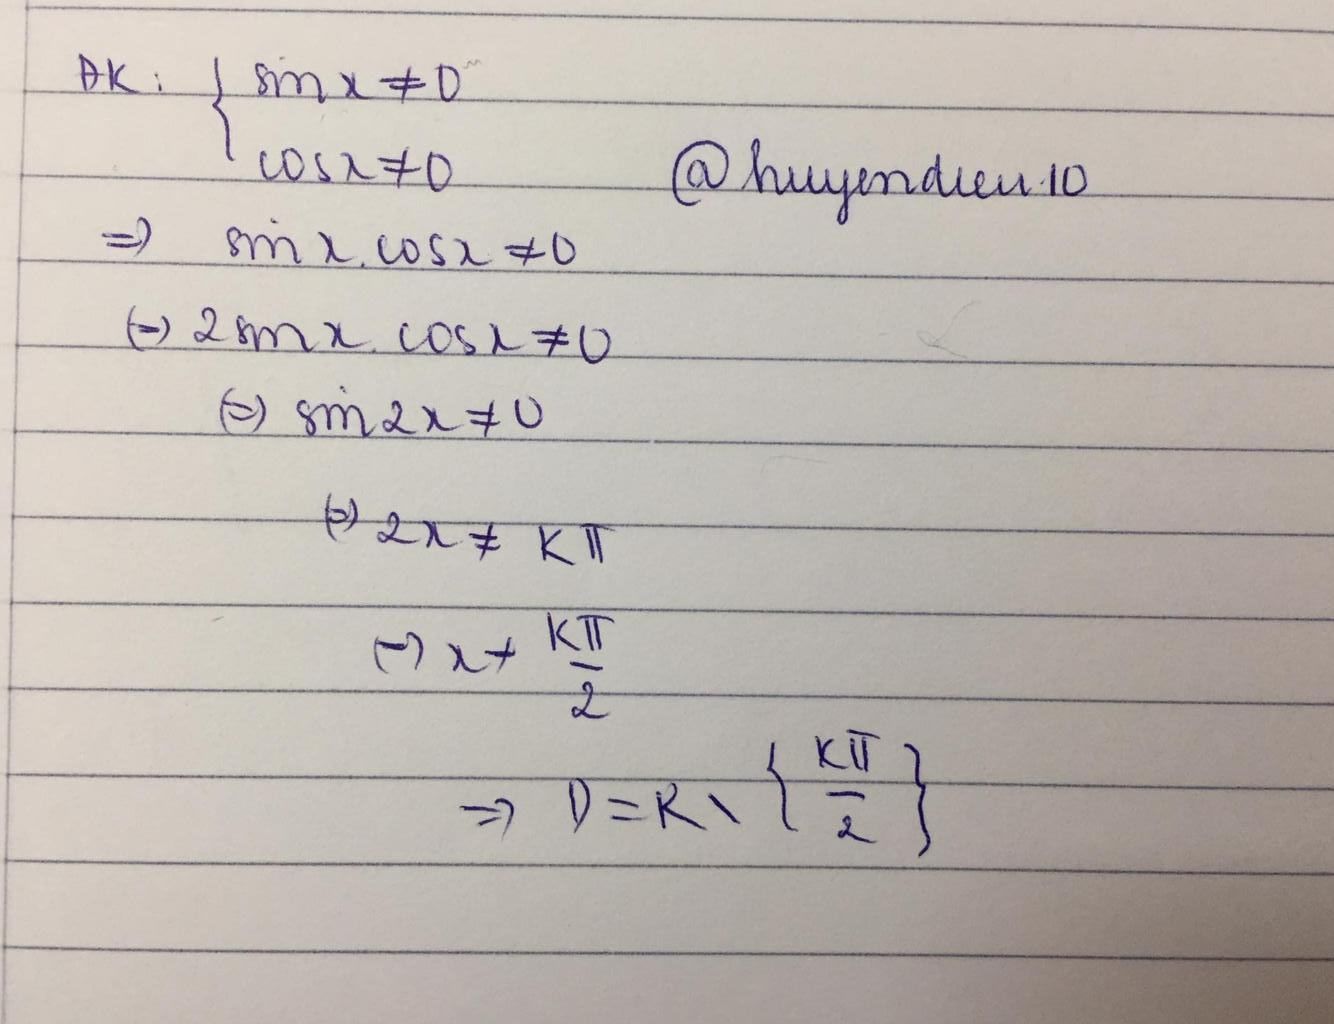 ĐK: { sin x ≠ 0
cos x ≠ 0
@huyendieu10
=> sin x. cos x ≠ 0
(=) 2 sin x. cos x ≠ 0
(=) sin 2x ≠ 0
(=) 2x ≠ Kπ
(=) x ≠ Kπ/2
=> D = R \ { Kπ/2 }